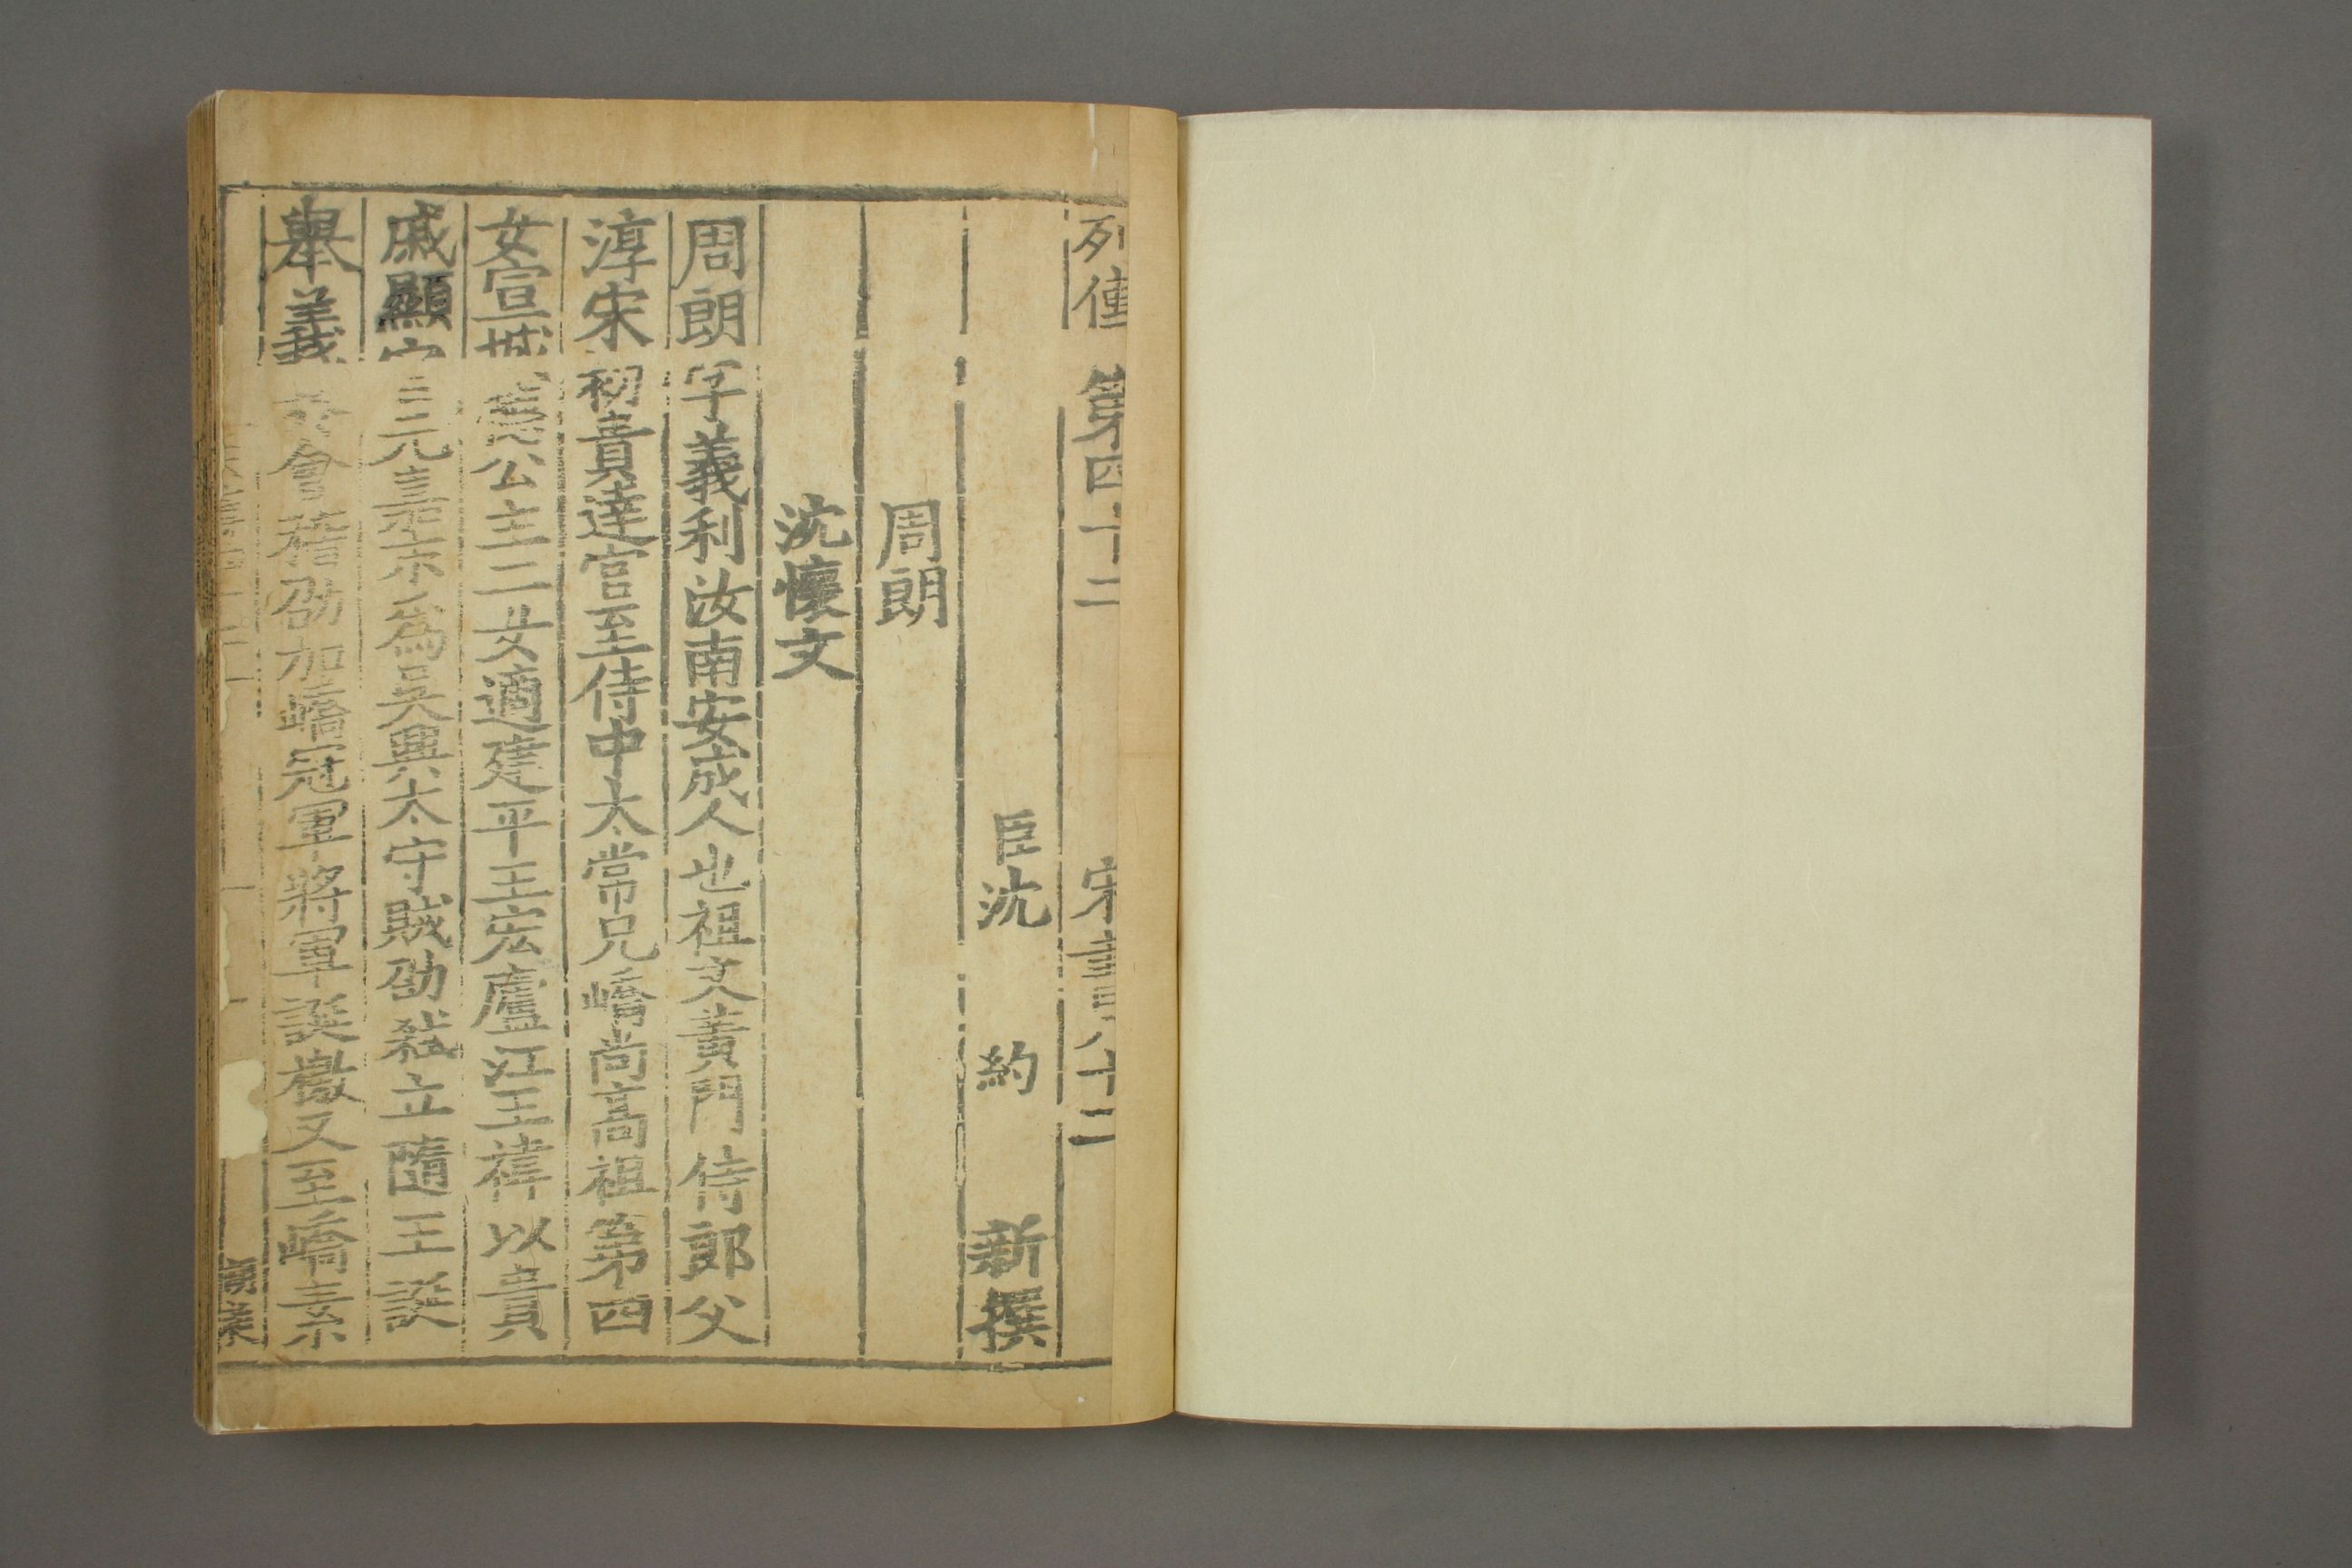 列傳第四十二 宋書八十二
臣沈 約 新撰
周朗
沈懷文
周朗字義利汝南安成人也祖文黃門侍郎父
淳宋初貴達官至侍中太常兄嶠尚高祖第四
女宣城德公主二女適建平王宏廬江王褘以貴
戚顯官元嘉末為吳興太守賊劭弒立隨王誕
舉義於會稽劭加嶠冠軍將軍誕檄又至嶠素